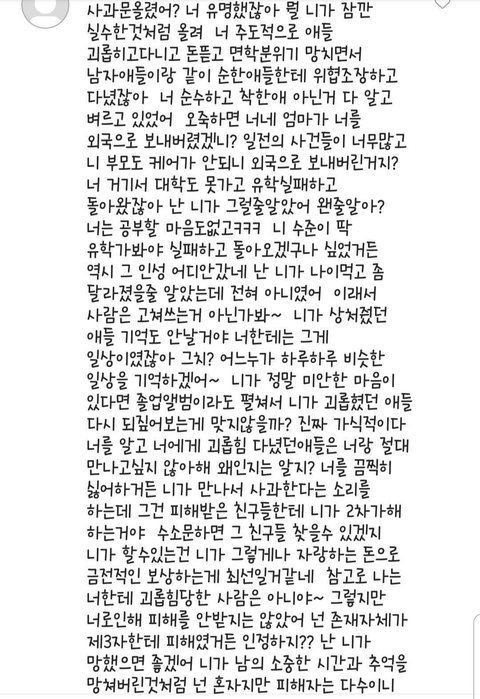 사과문올렸어? 너 유명했잖아 뭘 니가 잠깐
실수한것처럼 올려  너 주도적으로 애들
괴롭히고다니고 돈뜯고 면학분위기 망치면서
남자애들이랑 같이 순한애들한테 위협조장하고
다녔잖아  너 순수하고 착한애 아닌거 다 알고
벼르고 있었어  오죽하면 너네 엄마가 너를
외국으로 보내버렸겠니? 일전의 사건들이 너무많고
니 부모도 케어가 안되니 외국으로 보내버린거지?
너 거기서 대학도 못가고 유학실패하고
돌아왔잖아 난 니가 그럴줄알았어 왠줄알아?
너는 공부할 마음도없고ㅋㅋㅋ  니 수준이 딱
유학가봐야 실패하고 돌아오겠구나 싶었거든
역시 그 인성 어디안갔네 난 니가 나이먹고 좀
달라졌을줄 알았는데 전혀 아니였어  이래서
사람은 고쳐쓰는거 아닌가봐~  니가 상처줬던
애들 기억도 안날거야 너한테는 그게
일상이였잖아 그치? 어느누가 하루하루 비슷한
일상을 기억하겠어~  니가 정말 미안한 마음이
있다면 졸업앨범이라도 펼쳐서 니가 괴롭혔던 애들
다시 되짚어보는게 맞지않을까? 진짜 가식적이다
너를 알고 너에게 괴롭힘 다녔던애들은 너랑 절대
만나고싶지 않아해 왜인지는 알지? 너를 끔찍히
싫어하거든 니가 만나서 사과한다는 소리를
하는데 그건 피해받은 친구들한테 니가 2차가해
하는거야  수소문하면 그 친구들 찾을수 있겠지
니가 할수있는건 니가 그렇게나 자랑하는 돈으로
금전적인 보상하는게 최선일거같네  참고로 나는
너한테 괴롭힘당한 사람은 아니야~ 그렇지만
너로인해 피해를 안받지는 않았어 넌 존재자체가
제3자한테 피해였거든 인정하지?? 난 니가
망했으면 좋겠어 니가 남의 소중한 시간과 추억을
망쳐버린것처럼 넌 혼자지만 피해자는 다수이니